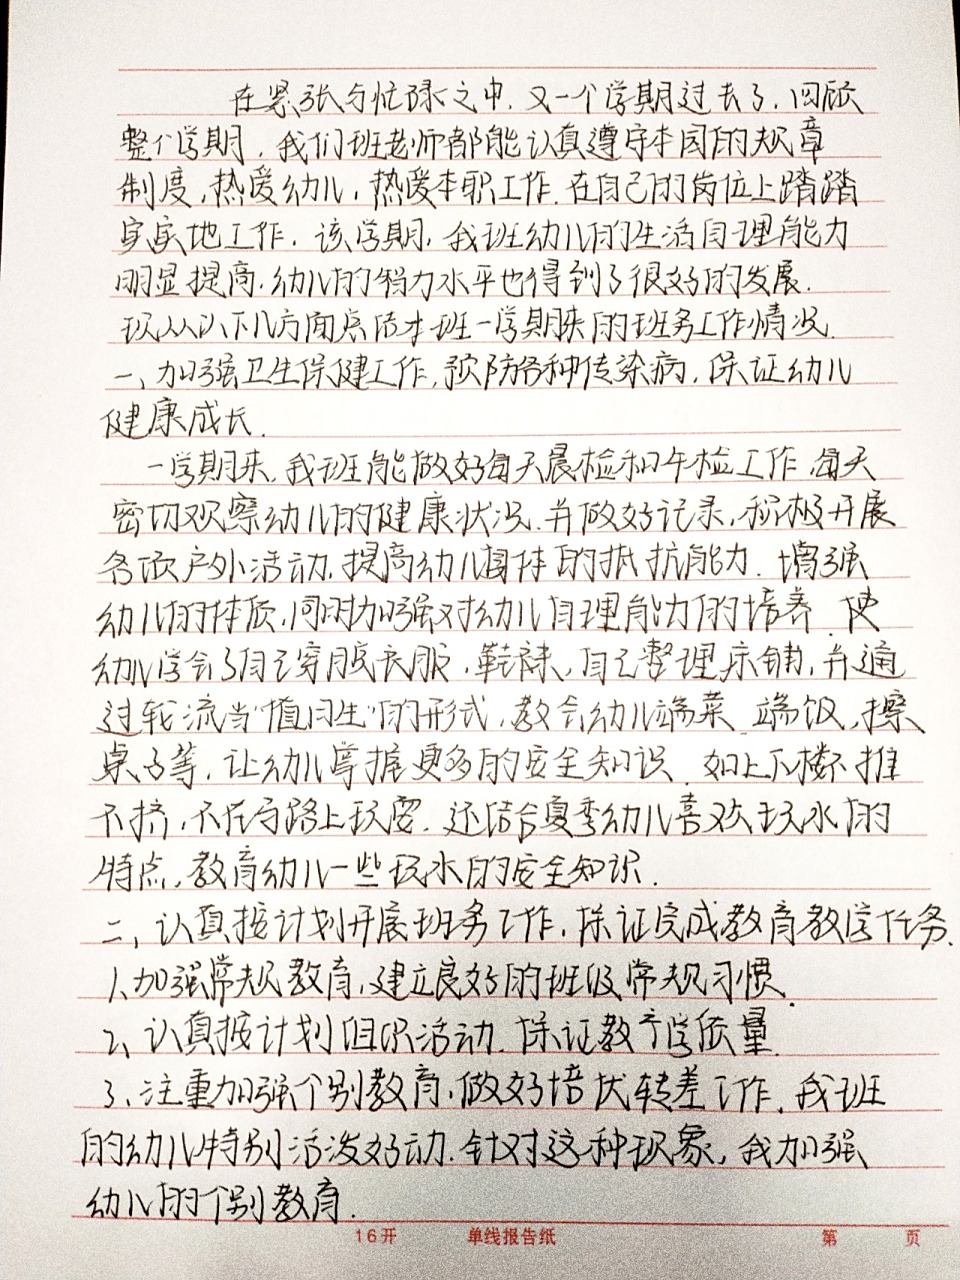 在紧张与忙碌之中，又一个学期过去了，回顾
整个学期，我们班老师都能认真遵守本园的规章
制度，热爱幼儿，热爱本职工作，在自己的岗位上踏踏
实实地工作，该学期，我班幼儿的生活自理能力
明显提高，幼儿的智力水平也得到了很好的发展.
现从以下几方面总结本班一学期来的班务工作情况.
一、加强卫生保健工作，预防各种传染病，保证幼儿
健康成长.
一学期来，我班能做好每天晨检和午检工作，每天
密切观察幼儿的健康状况，并做好记录，积极开展
各项户外活动，提高幼儿身体的抵抗能力，增强
幼儿的体质，同时加强对幼儿自理能力的培养，使
幼儿学会了自己穿脱衣服，鞋袜，自己整理床铺，并通
过轮流当"值日生"的形式，教会幼儿端菜、端饭，擦
桌子等，让幼儿掌握更多的安全知识，如上下楼不推
不挤，不在马路上玩耍，还结合夏季幼儿喜欢玩水的
特点，教育幼儿一些玩水的安全知识.
二、认真按计划开展班务工作，保证完成教育教学任务.
1、加强常规教育，建立良好的班级常规习惯.
2、认真按计划组织活动，保证教学质量.
3、注重加强个别教育，做好培优转差工作，我班
的幼儿特别活泼好动，针对这种现象，我加强
幼儿的个别教育.
16开 单线报告纸 第 页